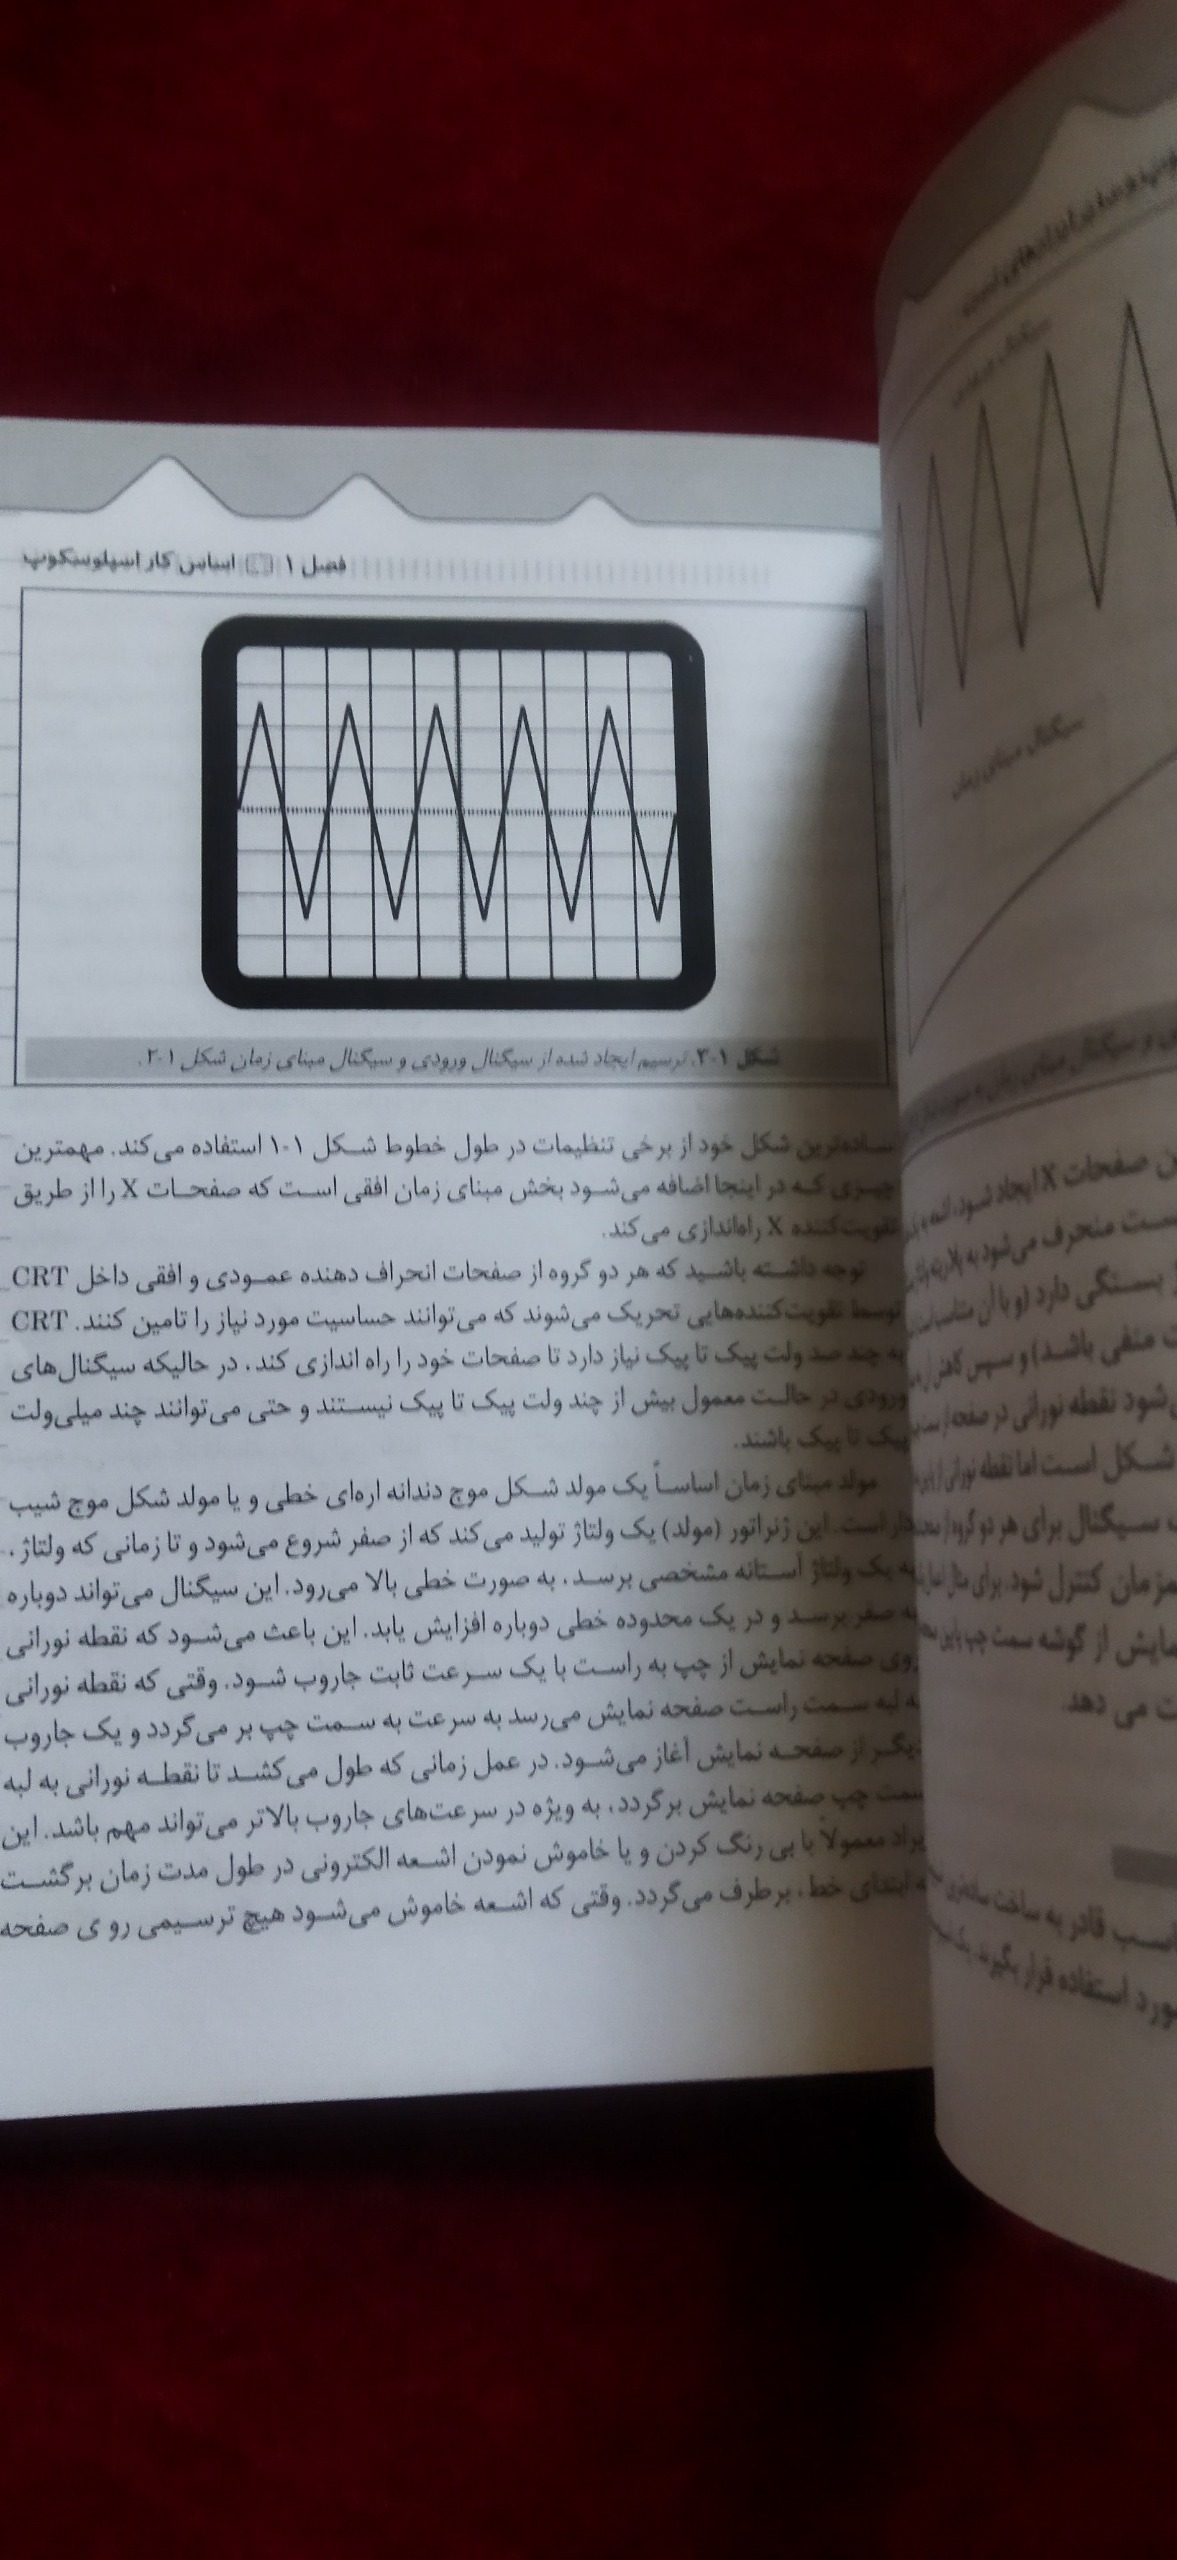 فصل ۱ اساس کار اسیلوسکوپ
شکل ۱-۳. ترسیم ایجاد شده از سیگنال ورودی و سیگنال مبنای زمان شکل ۱-۲.
ساده‌ترین شکل خود از برخی تنظیمات در طول خطوط شکل ۱-۱ استفاده می‌کند. مهمترین
چیزی که در اینجا اضافه می‌شود بخش مبنای زمان افقی است که صفحات X را از طریق
تقویت‌کننده X راه‌اندازی می‌کند.
توجه داشته باشید که هر دو گروه از صفحات انحراف دهنده عمودی و افقی داخل CRT
توسط تقویت‌کننده‌هایی تحریک می‌شوند که می‌توانند حساسیت مورد نیاز را تامین کنند. CRT
به چند صد ولت پیک تا پیک نیاز دارد تا صفحات خود را راه اندازی کند، در حالیکه سیگنال‌های
ورودی در حالت معمول بیش از چند ولت پیک تا پیک نیستند و حتی می‌توانند چند میلی‌ولت
پیک تا پیک باشند.
مولد مبنای زمان اساساً یک مولد شکل موج دندانه اره‌ای خطی و یا مولد شکل موج شیب
دار است. این ژنراتور (مولد) یک ولتاژ تولید می‌کند که از صفر شروع می‌شود و تا زمانی که ولتاژ،
به یک ولتاژ آستانه مشخصی برسد، به صورت خطی بالا می‌رود. این سیگنال می‌تواند دوباره
به صفر برسد و در یک محدوده خطی دوباره افزایش یابد. این باعث می‌شود که نقطه نورانی
روی صفحه نمایش از چپ به راست با یک سرعت ثابت جاروب شود. وقتی که نقطه نورانی
به لبه سمت راست صفحه نمایش می‌رسد به سرعت به سمت چپ بر می‌گردد و یک جاروب
دیگر از صفحه نمایش آغاز می‌شود. در عمل زمانی که طول می‌کشد تا نقطه نورانی به لبه
سمت چپ صفحه نمایش برگردد، به ویژه در سرعت‌های جاروب بالاتر می‌تواند مهم باشد. این
ایراد معمولاً با بی رنگ کردن و یا خاموش نمودن اشعه الکترونی در طول مدت زمان برگشت
به ابتدای خط، برطرف می‌گردد. وقتی که اشعه خاموش می‌شود هیچ ترسیمی رو ی صفحه
سیگنال مبنای زمان
صفحات X ایجاد شود،
منحرف می‌شود به
بستگی دارد (و با آن
منفی باشد) و سپس کاهش
شود نقطه نورانی در صفحه
شکل است اما نقطه نورانی
سیگنال برای هر دو گروه
کنترل شود. برای مثال
از گوشه سمت چپ
ت می دهد.
قادر به ساخت
مورد استفاده قرار بگیرند.